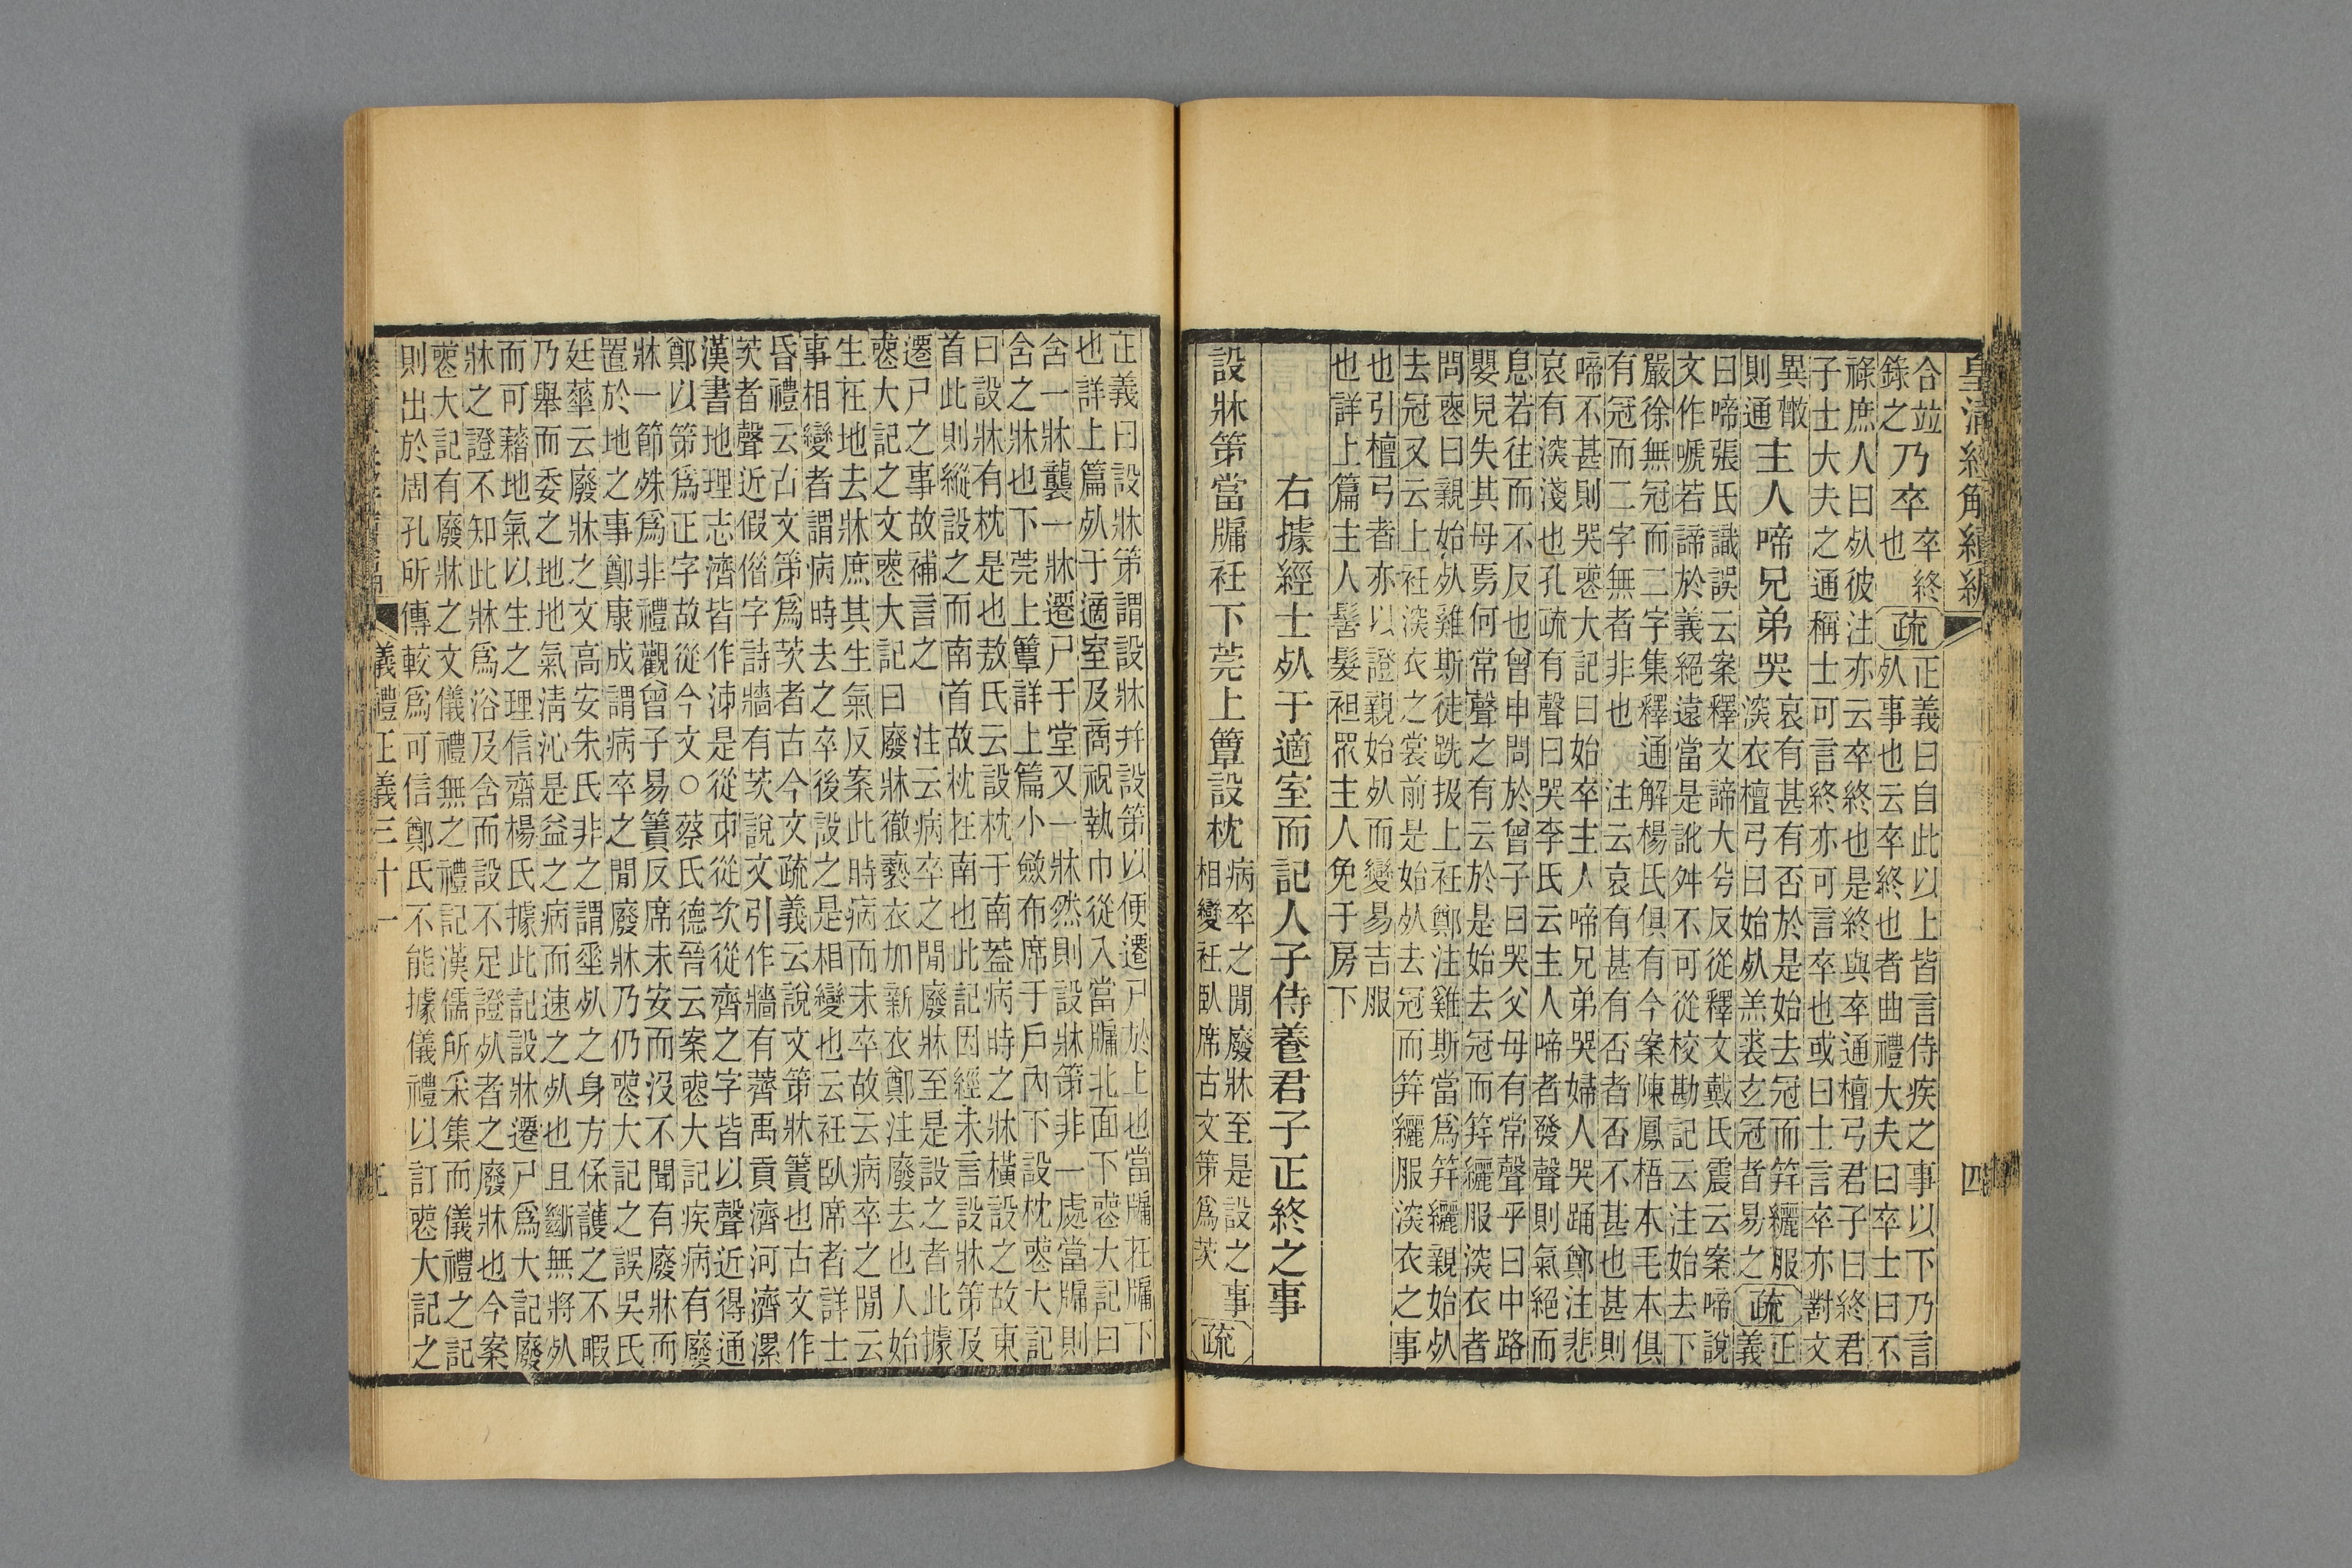 皇清經解續編
四
合並錄之乃卒卒終也疏正義曰自此以上皆言侍疾之事以下乃言
歾事也云卒終也者曲禮大夫曰卒士曰不
祿庶人曰歾彼注亦云卒終也是終與卒通檀弓君子曰終君
子士大夫之通稱士可言終亦可言卒也或曰士言卒亦對文
異散則通主人啼兄弟哭哀有甚有否於是始去冠而筓纚服
深衣檀弓曰始歾羔裘玄冠者易之疏正義
曰啼張氏識誤云案釋文諦大兮反從釋文戴氏震云案啼說
文作嗁若諦於義絕遠當是訛舛不可從校勘記云注始去下
嚴徐無冠而二字集釋通解楊氏俱有今案陳鳳梧本毛本俱
有冠而二字無者非也 注云哀有甚有否者否不甚也甚則
啼不甚則哭喪大記曰始卒主人啼兄弟哭婦人哭踊鄭注悲
哀有深淺也孔疏有聲曰哭李氏云主人啼者發聲則氣絕而
息若往而不反也曾申問於曾子曰哭父母有常聲乎曰中路
嬰兒失其母焉何常聲之有云於是始去冠而筓纚服深衣者
問喪曰親始歾雞斯徒跣扱上衽鄭注雞斯當爲筓纚親始歾
去冠又云上衽深衣之裳前是始歾去冠而筓纚服深衣之事
也引檀弓者亦以證親始歾而變易吉服
也詳上篇主人髻髮袒眾主人免于房下
右據經士歾于適室而記人子侍養君子正終之事
設牀第當牖衽下莞上簟設枕病卒之閒廢牀至是設之事
相變衽臥席古文第爲茨疏
正義曰設牀第謂設牀幷設第以便遷尸於上也當牖在牖下
也詳上篇歾于適室及商祝執巾從入當牖北面下喪大記曰
含一牀襲一牀遷尸于堂又一牀然則設牀第非一處當牖則
含之牀也下莞上簟詳上篇小斂布席于戶內下設枕喪大記
曰設牀有枕是也敖氏云設枕于南蓋病時之牀橫設之故東
首此則縱設之而南首故枕在南也此記因經未言設牀第及
遷尸之事故補言之 注云病卒之閒廢牀至是設之者此據
喪大記之文喪大記曰廢牀徹褻衣加新衣鄭注廢去也人始
生在地去牀庶其生氣反案此時病而未卒故云病卒之閒云
事相變者謂病時去之卒後設之是相變也云衽臥席者詳士
昏禮云古文第爲茨者古今文疏義云說文第牀簀也古文作
茨者聲近假借字詩牆有茨說文引作牆有薺禹貢濟河濟漯
漢書地理志濟皆作泲是從朿從次從齊之字皆以聲近得通
鄭以第爲正字故從今文○蔡氏德晉云案喪大記疾病有廢
牀一節殊爲非禮觀曾子易簀反席未安而沒不聞有廢牀而
置於地之事鄭康成謂病卒之閒廢牀乃仍喪大記之誤吳氏
廷華云廢牀之文高安朱氏非之謂垂歾之身方保護之不暇
乃舉而委之地地氣清沁是益之病而速之歾也且斷無將歾
而可藉地氣以生之理信齋楊氏據此記設牀遷尸爲大記廢
牀之證不知此牀爲浴及含而設不足證歾者之廢牀也今案
喪大記有廢牀之文儀禮無之禮記漢儒所采集而儀禮之記
則出於周孔所傳較爲可信鄭氏不能據儀禮以訂喪大記之
儀禮正義三十一
五